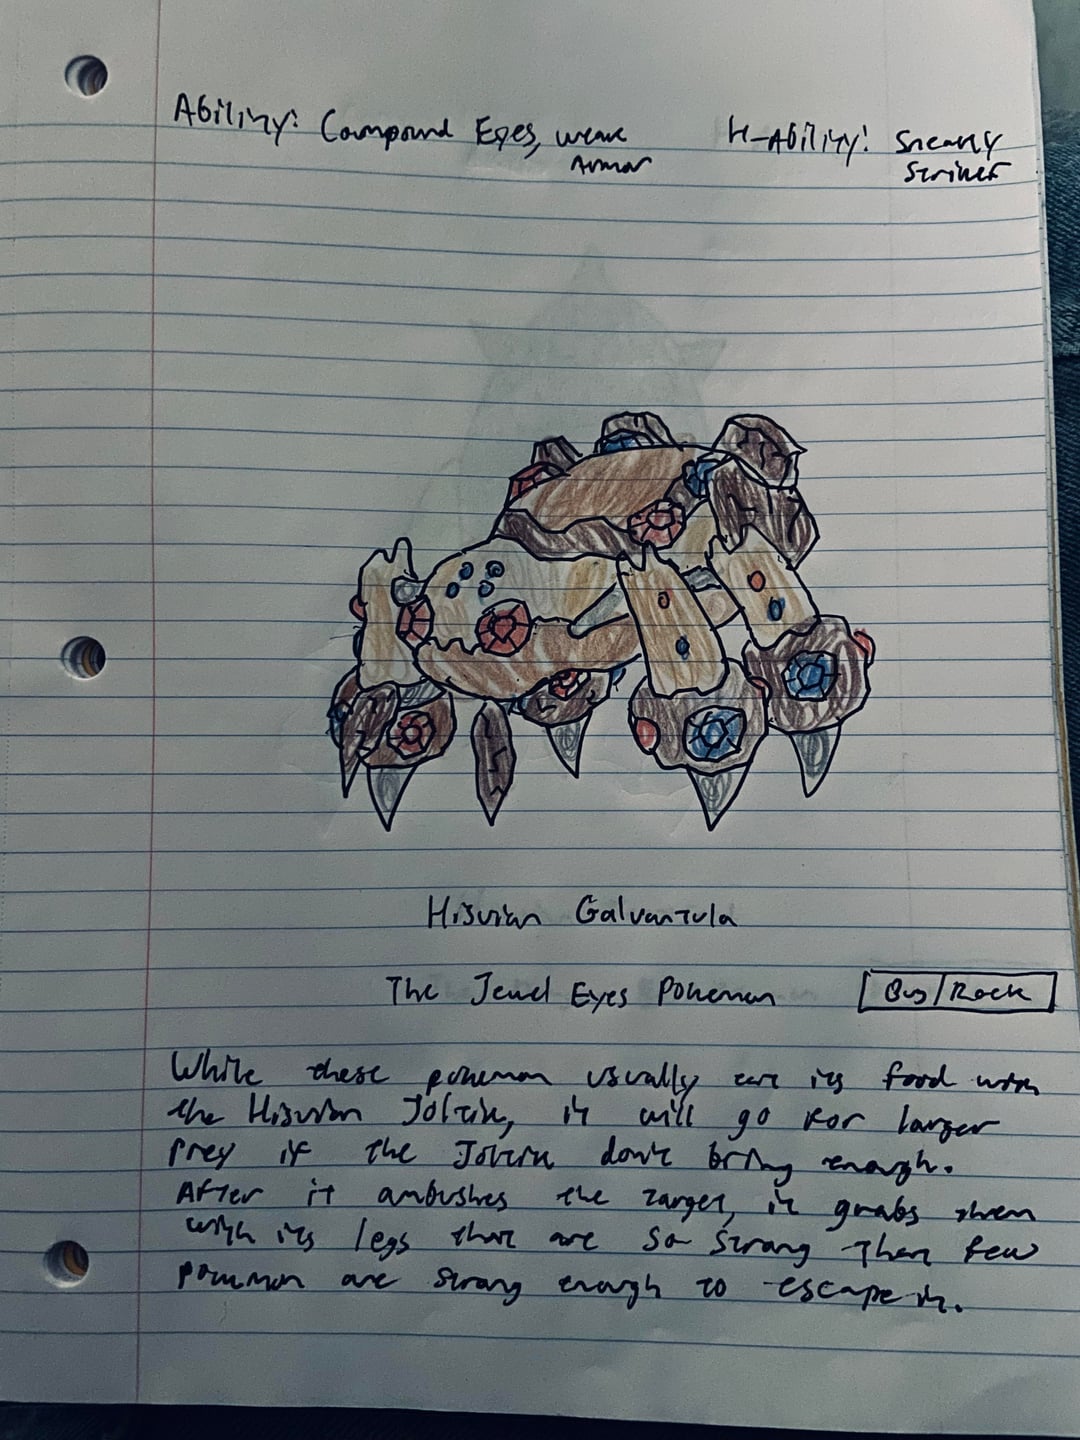 Ability: Compound Eyes, weak
Armor
H-Ability: Sneaky
Striker
Hisuian Galvantula
The Jewel Eyes Pokemon
Bug/Rock
While these pokemon usually eat its food with
the Hisuian Joltik, it will go for larger
prey if the Joltik don't bring enough.
After it ambushes the target, it grabs them
with its legs that are so strong that few
pokemon are strong enough to escape it.